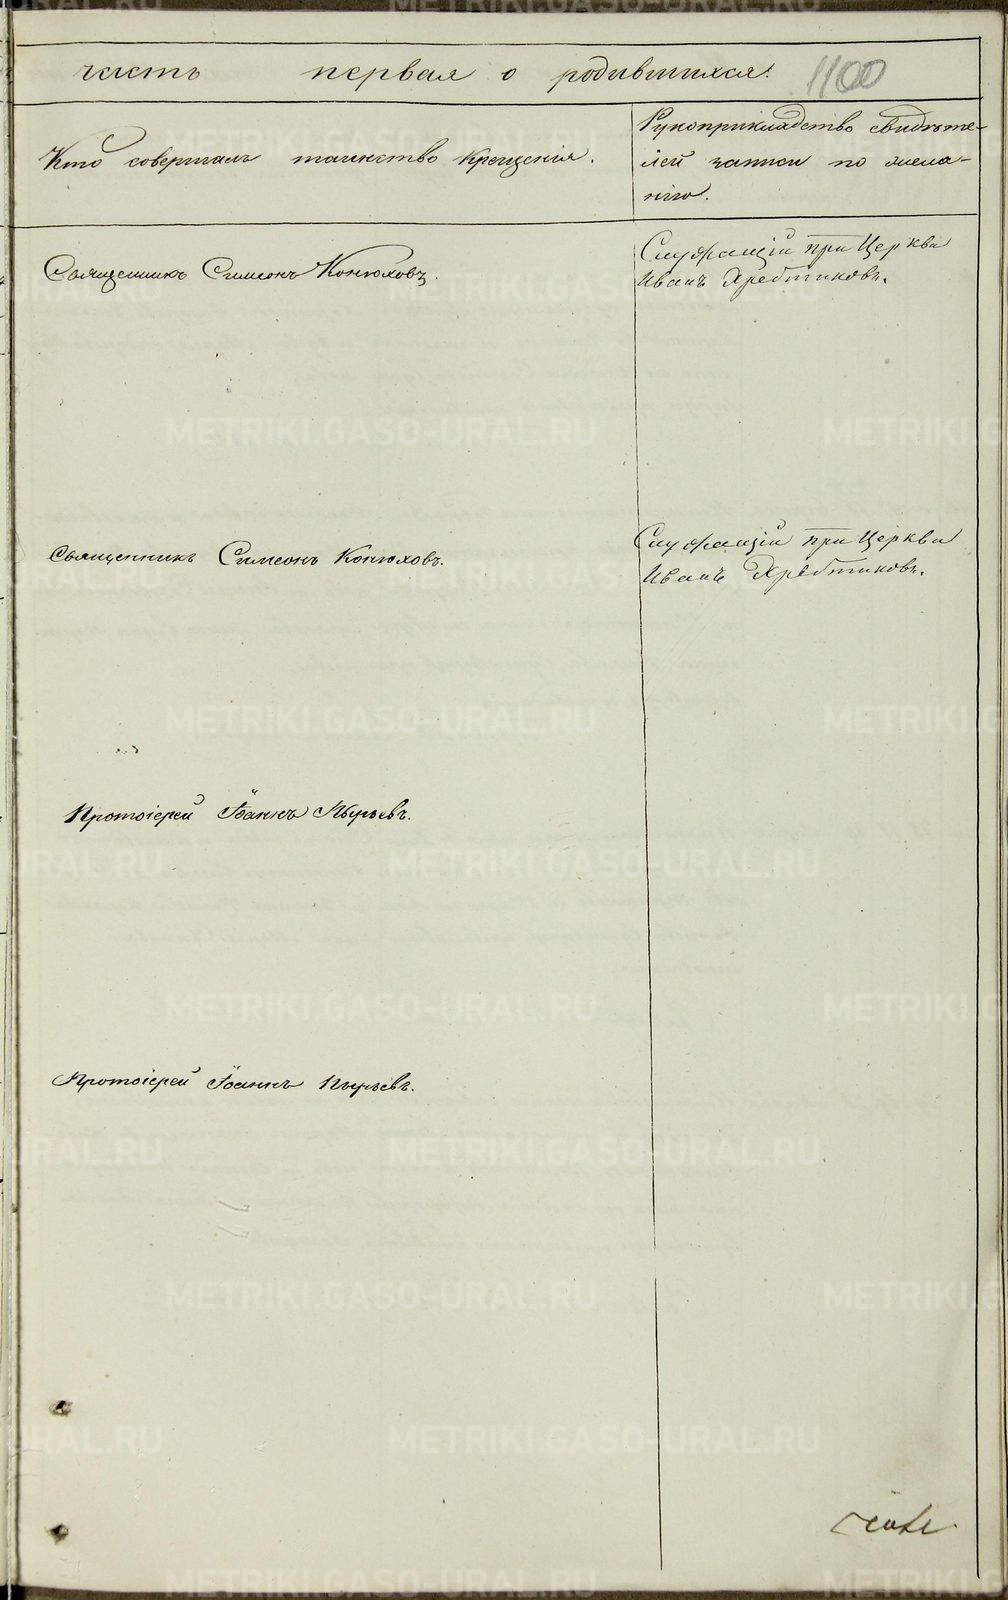 часть первая о родившихся. 1100
Кто совершалъ таинство крещенія.
Рукоприкладство свидѣте-
лей записи по жела-
нію.
Священникъ Симеонъ Конюховъ.
Служащій при Церкви
Иванъ Хребтиковъ.
Священникъ Симеонъ Конюховъ.
Служащій при Церкви
Иванъ Хребтиковъ.
Протоіерей Іоаннъ Пырьевъ.
Протоіерей Іоаннъ Пырьевъ.
METRIKI.GASO-URAL.RU